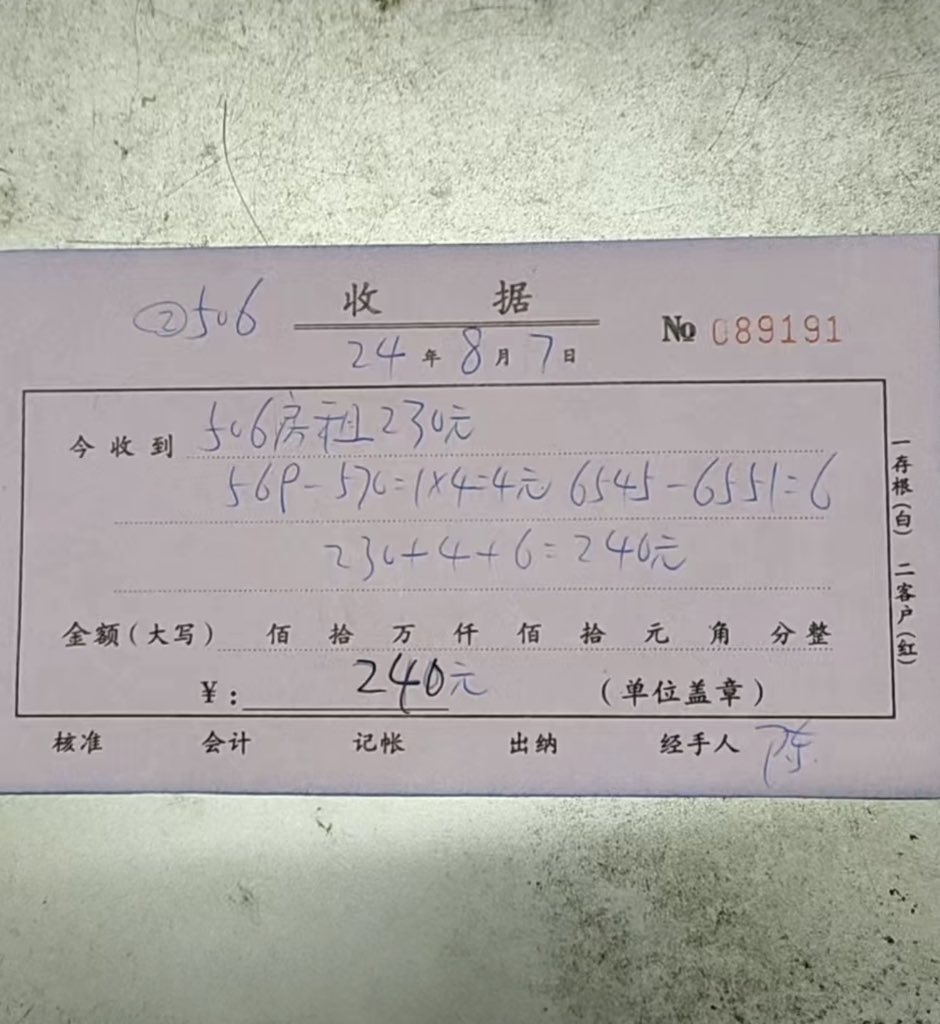 ②506 收据 № 089191
24年8月7日
今收到 506房租230元
569-570=1×4=4元 6545-6551=6
230+4+6=240元
金额(大写) 佰 拾 万 仟 佰 拾 元 角 分 整
¥: 240元 (单位盖章)
核准 会计 记帐 出纳 经手人 陈
一存根(白) 二客户(红)